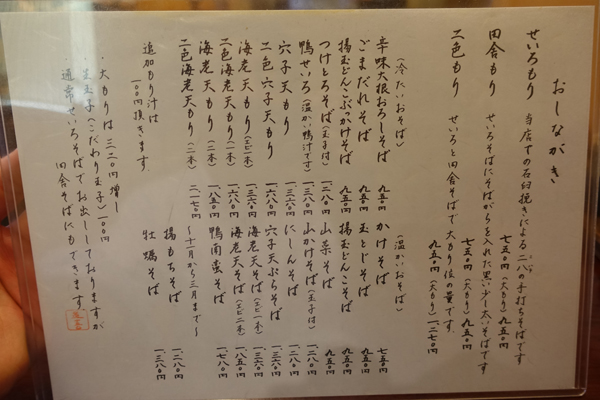 おしながき
せいろもり 当店での石臼挽きによる二八の手打ちそばです
七五〇円(大もり)九五〇円
田舎もり せいろそばにそばがらを入れた黒い少し太いそばです
七五〇円(大もり)九五〇円
二色もり せいろと田舎そばで大もり位の量です
九五〇円(大もり)一二七〇円
(冷たいおそば)
辛味大根おろしそば 九五〇円
ごまだれそば 九五〇円
揚玉どんこぶっかけそば 九五〇円
つけとろそば(玉子は) 一二八〇円
鴨せいろ(温かい鴨汁です) 一三八〇円
穴子天もり 一三六〇円
二色穴子天もり 一六八〇円
海老天もり(エビ一本) 一三六〇円
二色海老天もり(一本) 一六八〇円
海老天もり(二本) 一八五〇円
二色海老天もり(二本) 二一七〇円
(温かいおそば)
かけそば 七五〇円
玉とじそば 九五〇円
揚玉どんこそば 九五〇円
山菜そば 九五〇円
山かけそば(玉子は) 一二八〇円
にしんそば 一二八〇円
穴子天ぷらそば 一三六〇円
海老天そば(エビ一本) 一三六〇円
海老天そば(エビ二本) 一八五〇円
鴨南蛮そば 一七八〇円
〜十一月から三月まで〜
揚もちそば 一二八〇円
牡蠣そば 一三八〇円
追加もり汁は
一〇〇円頂きます
・大もりは三二〇円増し
・生玉子(こだわり玉子)一〇〇円
・通常せいろそばでお出ししておりますが
田舎そばにもできます